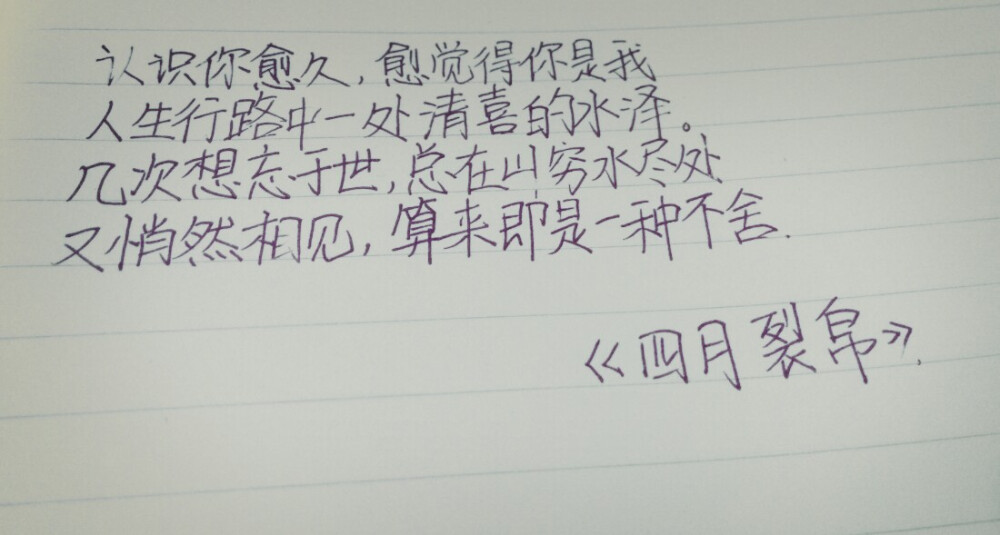 认识你愈久，愈觉得你是我
人生行路中一处清喜的水泽。
几次想忘于世，总在山穷水尽处
又悄然相见，算来即是一种不舍.
《四月裂帛》.